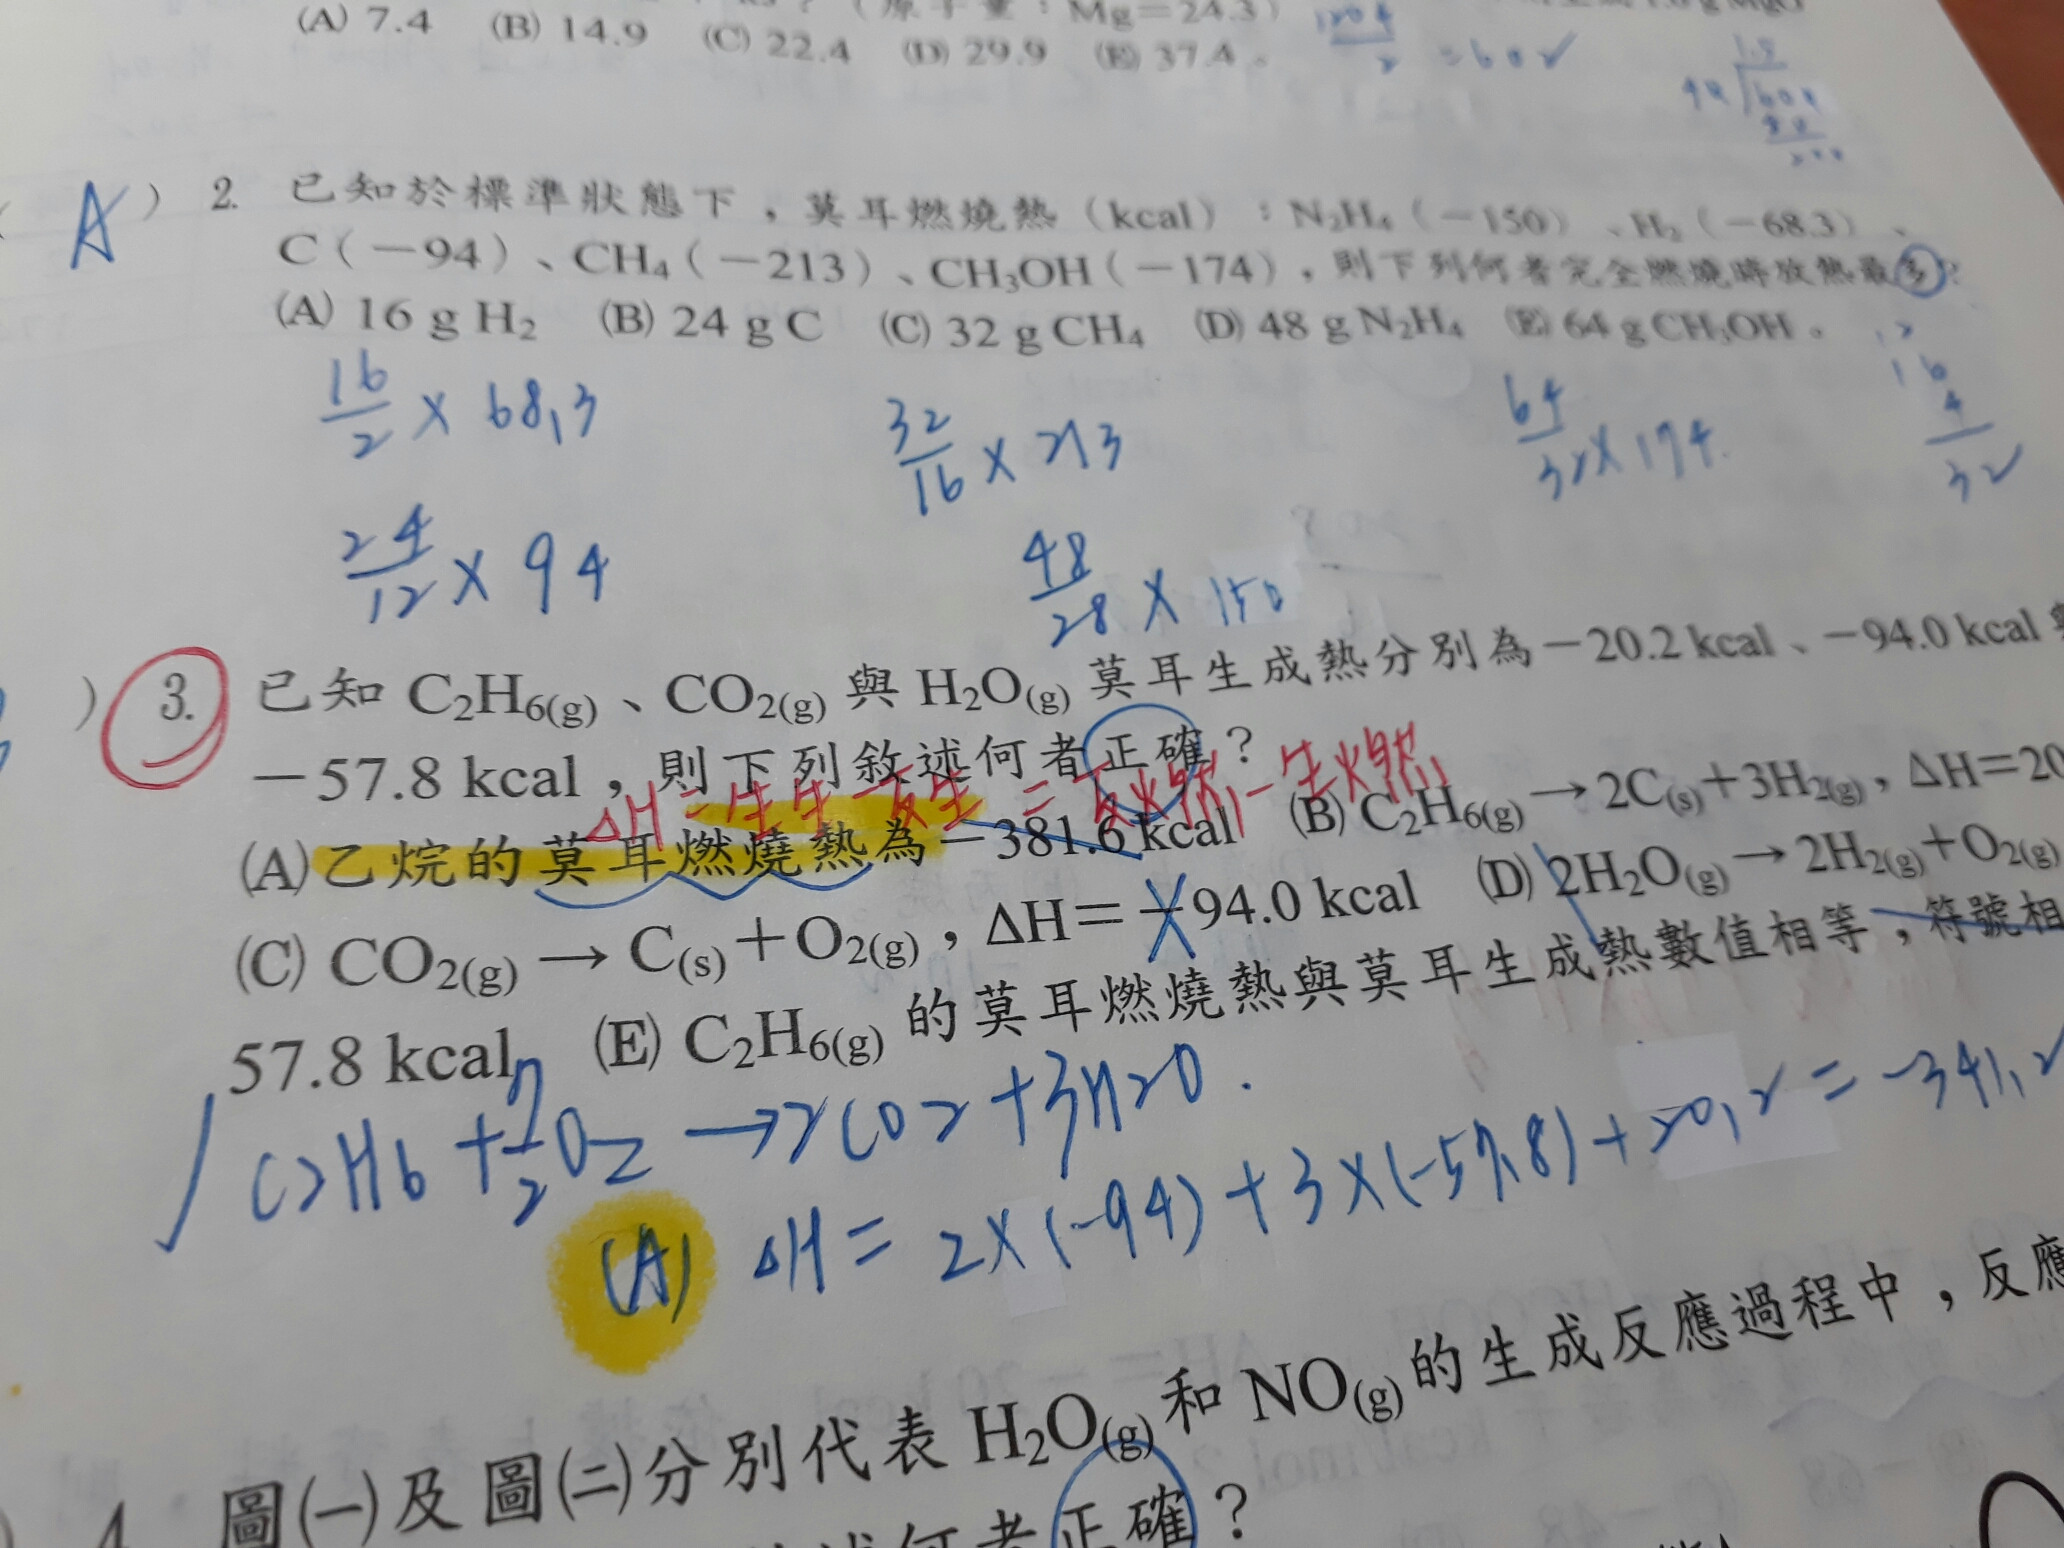 (A) 7.4 (B) 14.9 (C) 22.4 (D) 29.9 (E) 37.4。
A ) 2. 已知於標準狀態下，莫耳燃燒熱（kcal）：N₂H₄（－150）、H₂（－68.3）、
C（－94）、CH₄（－213）、CH₃OH（－174），則下列何者完全燃燒時放熱最多？
(A) 16 g H₂ (B) 24 g C (C) 32 g CH₄ (D) 48 g N₂H₄ (E) 64 g CH₃OH。
16/2 × 68.3 32/16 × 213 64/32 × 174
24/12 × 94 48/28 × 150
) 3. 已知 C₂H₆(g)、CO₂(g) 與 H₂O(g) 莫耳生成熱分別為－20.2 kcal、－94.0 kcal
－57.8 kcal，則下列敘述何者正確？
ΔH = 生生 － 反生 = 反燃 － 生燃
(A) 乙烷的莫耳燃燒熱為－381.6 kcal (B) C₂H₆(g) → 2C(s)＋3H₂(g)，ΔH＝20
(C) CO₂(g) → C(s)＋O₂(g)，ΔH＝－94.0 kcal (D) 2H₂O(g) → 2H₂(g)＋O₂(g)
57.8 kcal (E) C₂H₆(g) 的莫耳燃燒熱與莫耳生成熱數值相等，符號相
C2H6 + 7/2 O2 → 2CO2 + 3H2O.
(A) ΔH = 2×(-94) + 3×(-57.8) + 20.2 = -341.2
4 圖(一)及圖(二)分別代表 H₂O(g) 和 NO(g) 的生成反應過程中，反應
何者正確？